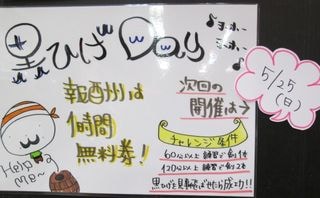 黒ひげDay
♪ヨーホー
ヨーホー♪
報酬は
1時間
無料券！
次回の
開催は→
5/25
(日)
チャレンジ条件
60分以上練習で剣1本
120分以上練習で剣2本
黒ひげを見事飛ばせたら成功!!
Help
me~